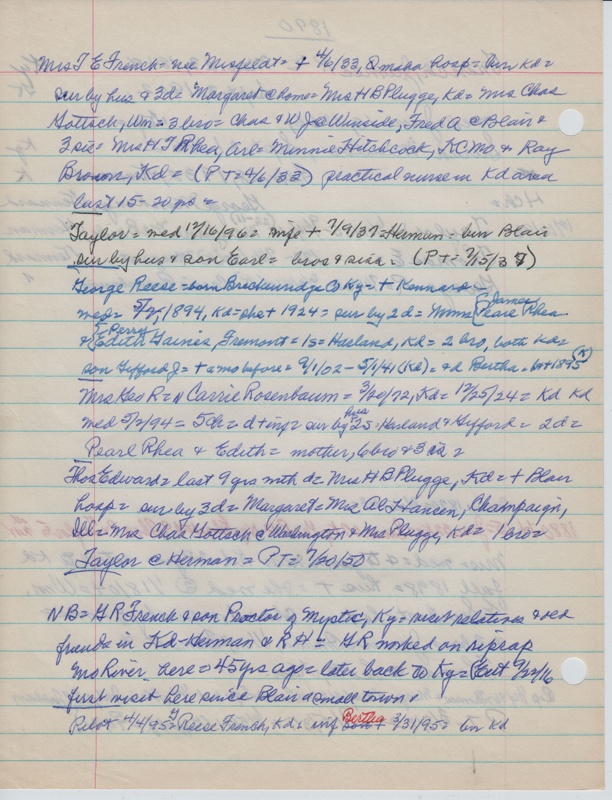 Mrs T E French = nee Misfeldt = + 4/6/33, Omaha hosp = bur Kd =
sur by hus & 3d = Margaret @ home = Mrs H B Plugge, Kd = Mrs Chas
Gottsch, Wn = 3 bro = Chas & W J @ Winside, Fred A @ Blair &
3 sis = Mrs H T Rhea, Arl = Minnie Hitchcock, K C Mo. & Ray
Brown, Kd = (PT = 4/6/33) practical nurse in Kd area
last 15-20 yrs =
Taylor = wed 12/16/96 = wife + 7/9/37 = Herman = bur Blair
sur by hus & son Earl = bros & sisa. (PT = 7/15/37)
George Reese = born Breckenridge Co Ky = + Kennard =
wed = 5/2, 1894, Kd = she + 1924 = sur by 2d = Mmes (James Pearl Rhea
& (Perry Edith Gaines, Fremont = 1s = Harland, Kd = 2 bro, both Kd =
son Gifford J = + a mo before = 9/1/02 - 5/1/41 (Kd) = & d Bertha = b & + 1895 (N)
Mrs Geo R = N Carrie Rosenbaum = 3/20/72, Kd = 12/25/24 = Kd Kd
wed 5/2/94 = 5ch = d + inf = sur by hus 2s = Harland & Gifford = 2d =
Pearl Rhea & Edith = mother, 6 bro & 3 sis =
Thos Edward = last 9 yrs with d = Mrs H B Plugge, Kd = + Blair
hosp = sur by 3d = Margaret = Mrs Al Hansen, Champaign,
Ill = Mrs Chas Gottsch @ Washington & Mrs Plugge, Kd = 1 bro =
Taylor @ Herman = PT = 7/20/50
NB = G R French & son Proctor of Mystic, Ky = visit relatives & old
friends in Kd - Herman & R H = G R worked on riprap
Mo River here = 45 yrs ago = later back to Ky = Ent 9/22/16
first visit here since Blair a small town.
Pilot 4/4/95 = Reese French, Kd = inf Bertha + 3/31/95 = bur Kd